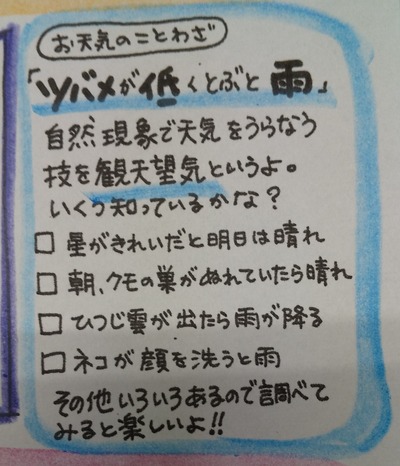 お天気のことわざ
「ツバメが低くとぶと雨」
自然現象で天気をうらなう
技を観天望気というよ。
いくつ知っているかな?
□ 星がきれいだと明日は晴れ
□ 朝、クモの巣がぬれていたら晴れ
□ ひつじ雲が出たら雨が降る
□ ネコが顔を洗うと雨
その他いろいろあるので調べて
みると楽しいよ!!